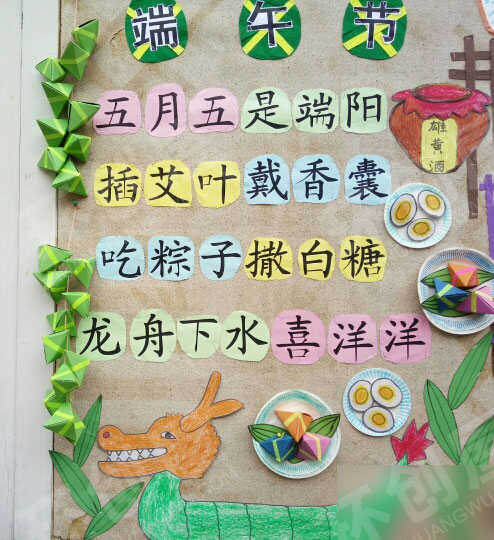 端午节
五月五是端阳
插艾叶戴香囊
吃粽子撒白糖
龙舟下水喜洋洋
雄黄酒